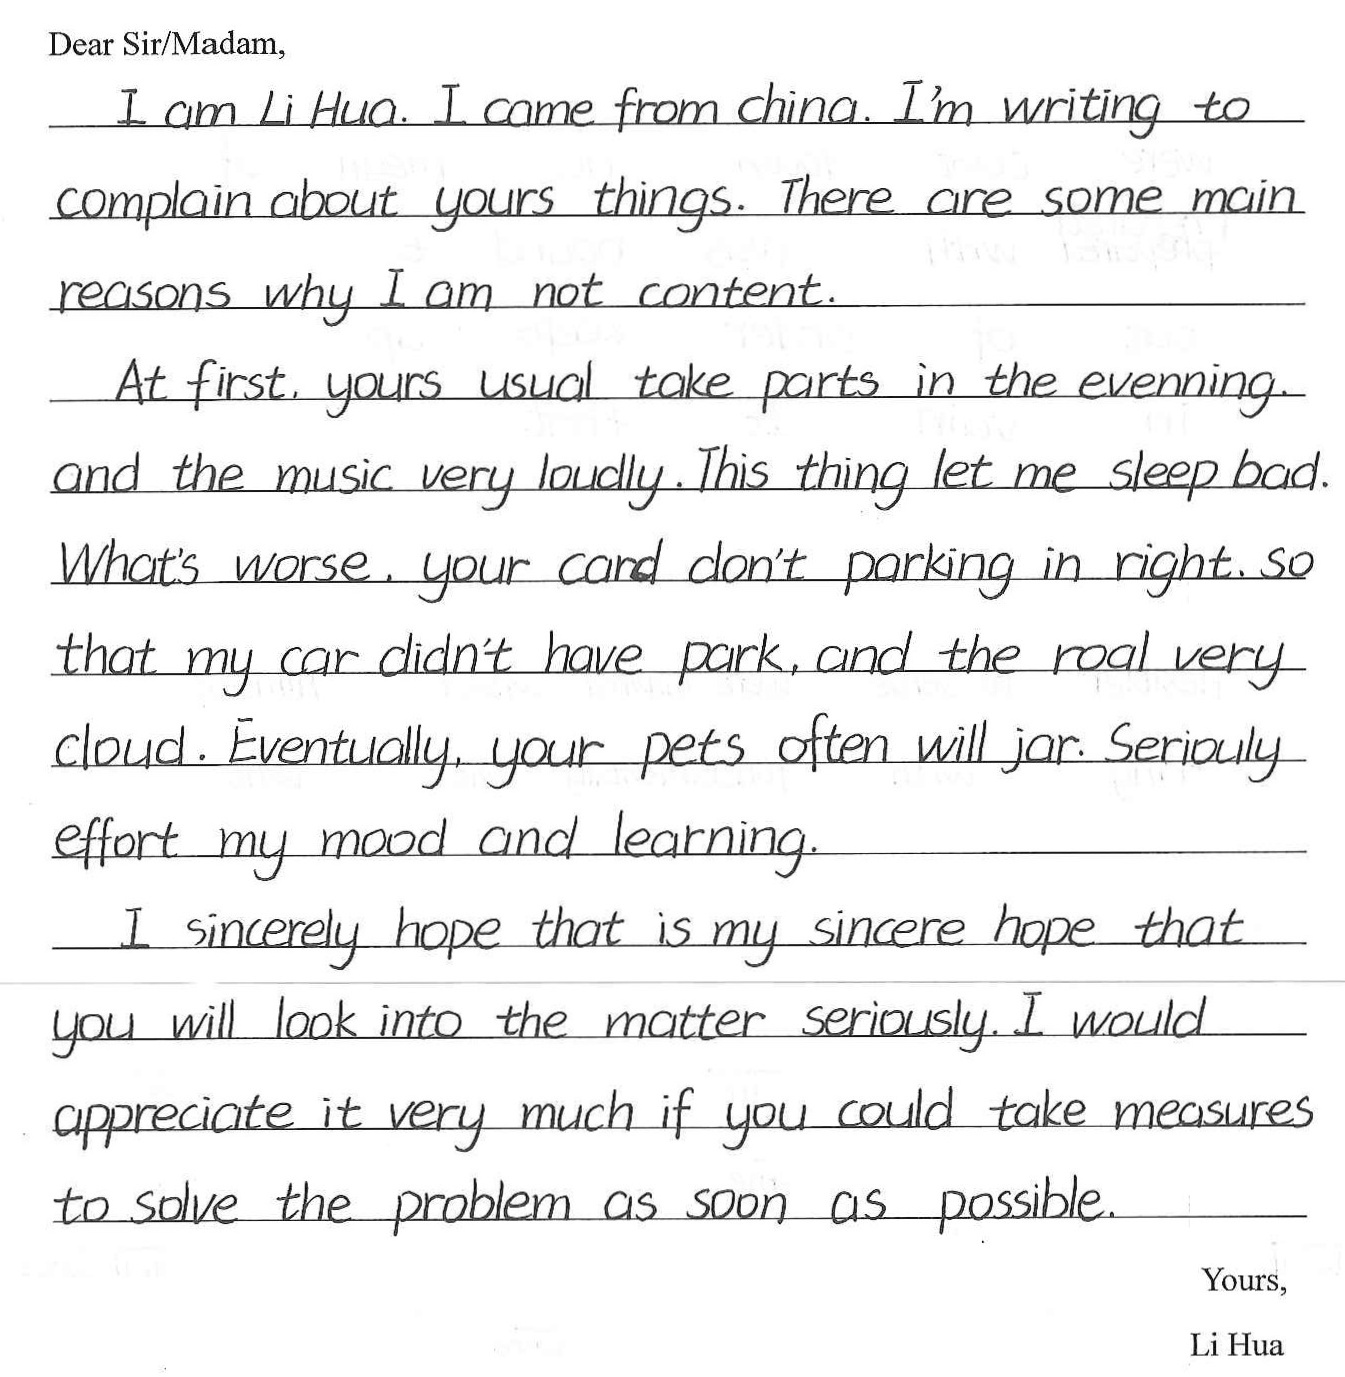 Dear Sir/Madam,
I am Li Hua. I come from china. I'm writing to
complain about yours things. There are some main
reasons why I am not content.
At first, yours usual take parts in the evenning.
and the music very loudly. This thing let me sleep bad.
What's worse, your card don't parking in right. so
that my car didn't have park, and the roal very
cloud. Eventually, your pets often will jar. Seriouly
effort my mood and learning.
I sincerely hope that is my sincere hope that
you will look into the matter seriously. I would
appreciate it very much if you could take measures
to solve the problem as soon as possible.
Yours,
Li Hua